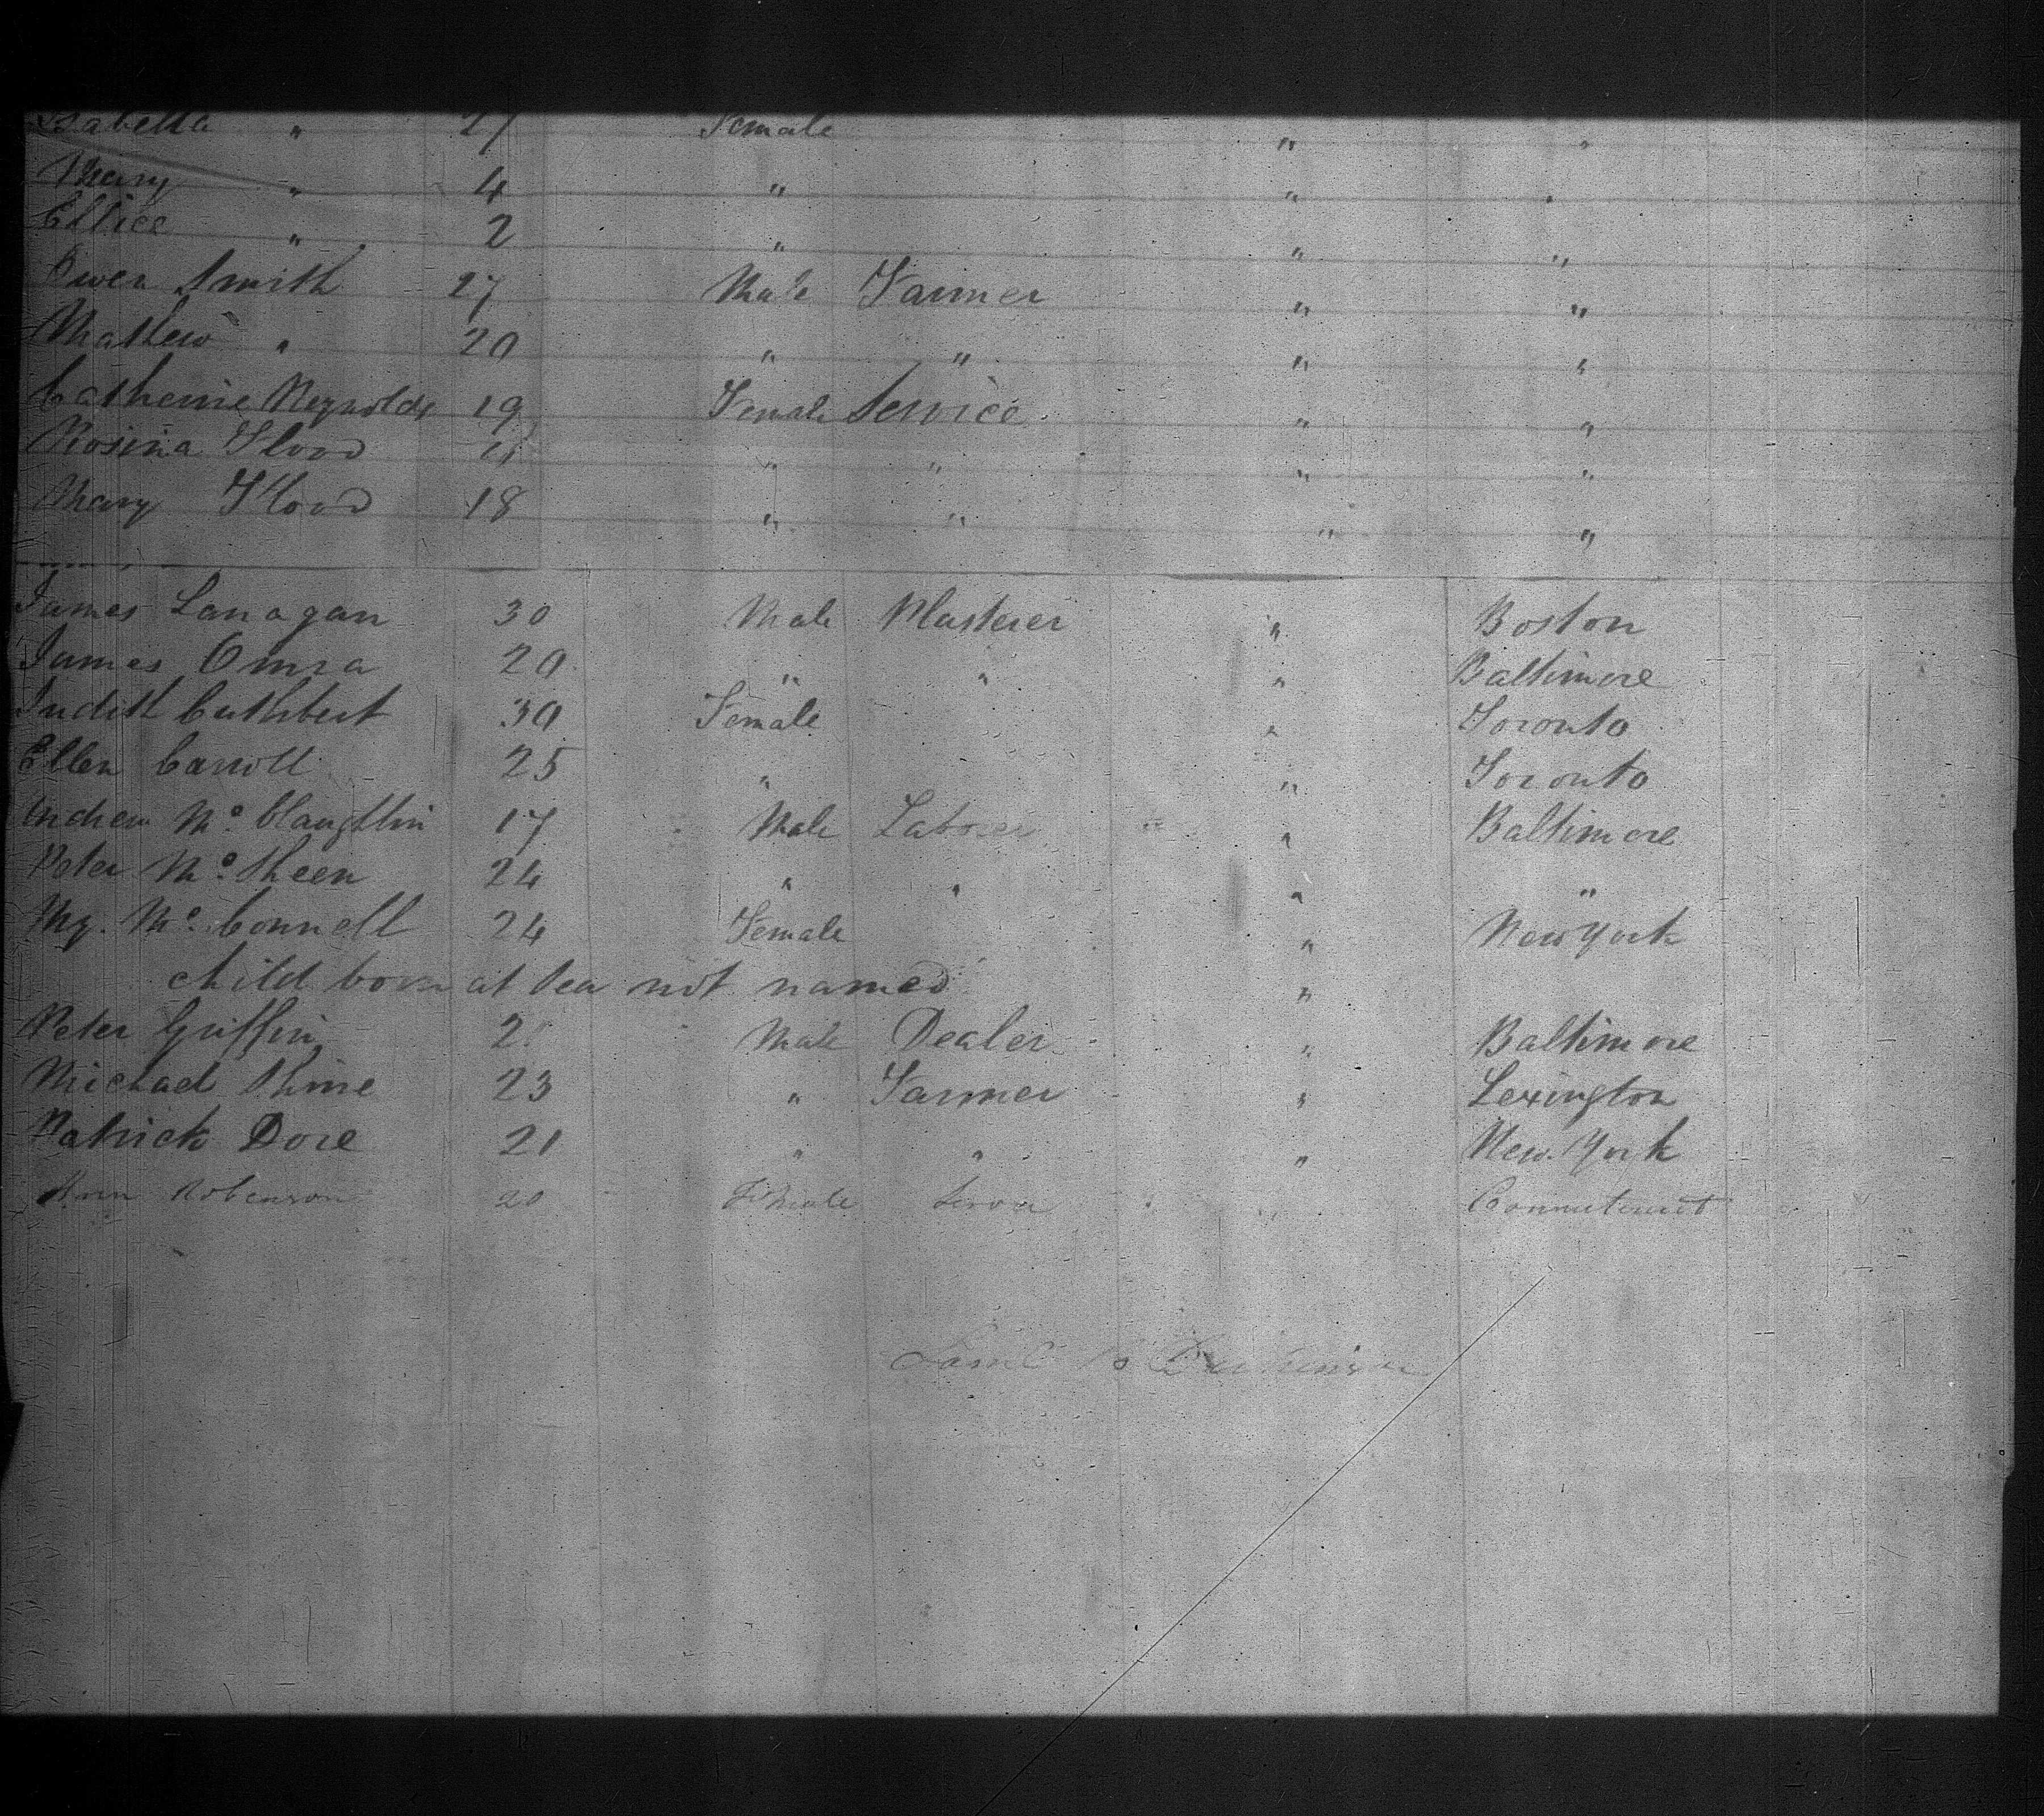 Isabella " 27 Female " "
Mary " 4 " " "
Ellice " 2 " " "
Owen Smith 27 Male Farmer " "
Mathew " 20 " " " "
Catherine Reynolds 19 Female Service " "
Rosina Flood " " " "
Mary Flood 18 " " " "
James Lanagan 30 Male Plasterer " Boston
James Omra 20 " " " Baltimore
Judith Cuthbert 30 Female " Toronto
Ellen Carroll 25 " " Toronto
Andrew Mc Claughlin 17 Male Laborer " Baltimore
Peter Mc Sheen 24 " " " "
My. Mc Connell 24 Female " New York
child born at sea not named "
Peter Griffin Male Dealer " Baltimore
Michael Shine 23 " Farmer " Lexington
Patrick Dore 21 " " " New York
Ann Robenson 20 Female "
Saml B